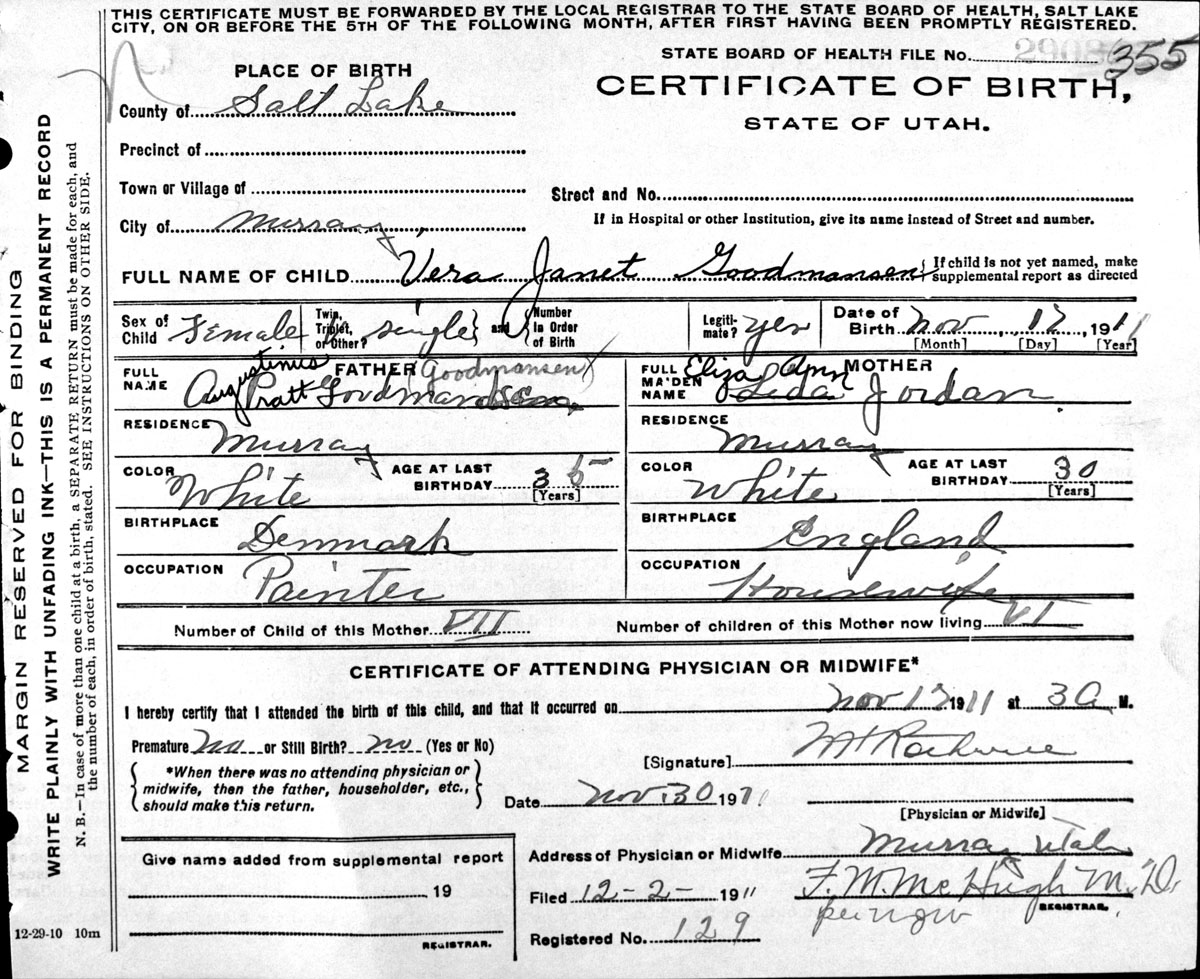 THIS CERTIFICATE MUST BE FORWARDED BY THE LOCAL REGISTRAR TO THE STATE BOARD OF HEALTH, SALT LAKE
CITY, ON OR BEFORE THE 5TH OF THE FOLLOWING MONTH, AFTER FIRST HAVING BEEN PROMPTLY REGISTERED.
MARGIN RESERVED FOR BINDING
WRITE PLAINLY WITH UNFADING INK—THIS IS A PERMANENT RECORD
N. B.—In case of more than one child at a birth, a SEPARATE RETURN must be made for each, and
the number of each, in order of birth, stated. SEE INSTRUCTIONS ON OTHER SIDE.
STATE BOARD OF HEALTH FILE No. 355
PLACE OF BIRTH
CERTIFICATE OF BIRTH,
STATE OF UTAH.
County of Salt Lake
Precinct of
Town or Village of
Street and No.
City of Murray
If in Hospital or other Institution, give its name instead of Street and number.
FULL NAME OF CHILD Vera Janet Goodmansen
{ If child is not yet named, make
supplemental report as directed
Sex of Child Female
Twin, Triplet, or Other? single } and { Number in Order of Birth
Legiti-mate? yes
Date of Birth Nov 12, 1911
[Month] [Day] [Year]
FULL NAME FATHER (Goodmansen)
Augustinus
Pratt
RESIDENCE Murray
COLOR White AGE AT LAST BIRTHDAY 35 [Years]
BIRTHPLACE Denmark
OCCUPATION Painter
FULL MAIDEN NAME MOTHER
Eliza Ann
Leda Jordan
RESIDENCE Murray
COLOR White AGE AT LAST BIRTHDAY 30 [Years]
BIRTHPLACE England
OCCUPATION Housewife
Number of Child of this Mother VII
Number of children of this Mother now living VI
CERTIFICATE OF ATTENDING PHYSICIAN OR MIDWIFE*
I hereby certify that I attended the birth of this child, and that it occurred on Nov 12 1911 at 3 A M.
Premature No or Still Birth? no (Yes or No)
{ *When there was no attending physician or
midwife, then the father, householder, etc.,
should make this return. }
[Signature]
Date Nov. 30 1911
[Physician or Midwife]
Give name added from supplemental report
, 19
REGISTRAR.
12-29-10 10m
Address of Physician or Midwife Murray Utah
Filed 12-2- 1911 F. M. McHugh M.D.
REGISTRAR.
per
Registered No. 129